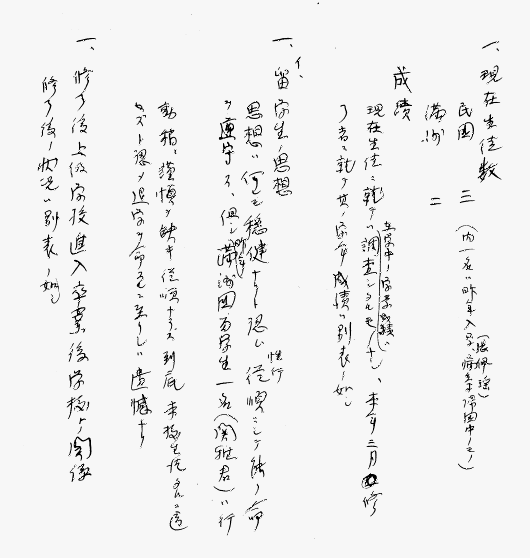 一、現在生徒数
民国 三 (内一名ハ昨年入学、病気帰国中ノモノ)
(張佩瑤)
満洲 二
成績
在学中ノ学業成績ハ
現在生徒ニ就テハ調査シタルモノナシ、本年三月修
了者ニ就テ其ノ学年成績ハ別表ノ如シ
一、留学生ノ思想
イ、
思想ハ何レモ穏健ナリト認ム 性行従順ニシテ能ク命
ヲ遵守ス、但シ昨年満洲国留学生一名(関雅君)ハ行
動稍々謹慎ヲ缺キ従順ナラス到底本校生徒タルニ適
セスト認メ退学ヲ命スルニ至リシハ遺憾ナリ
一、修了後上級学校進入卒業後学校トノ関係
修了後ノ状況ハ別表ノ如シ